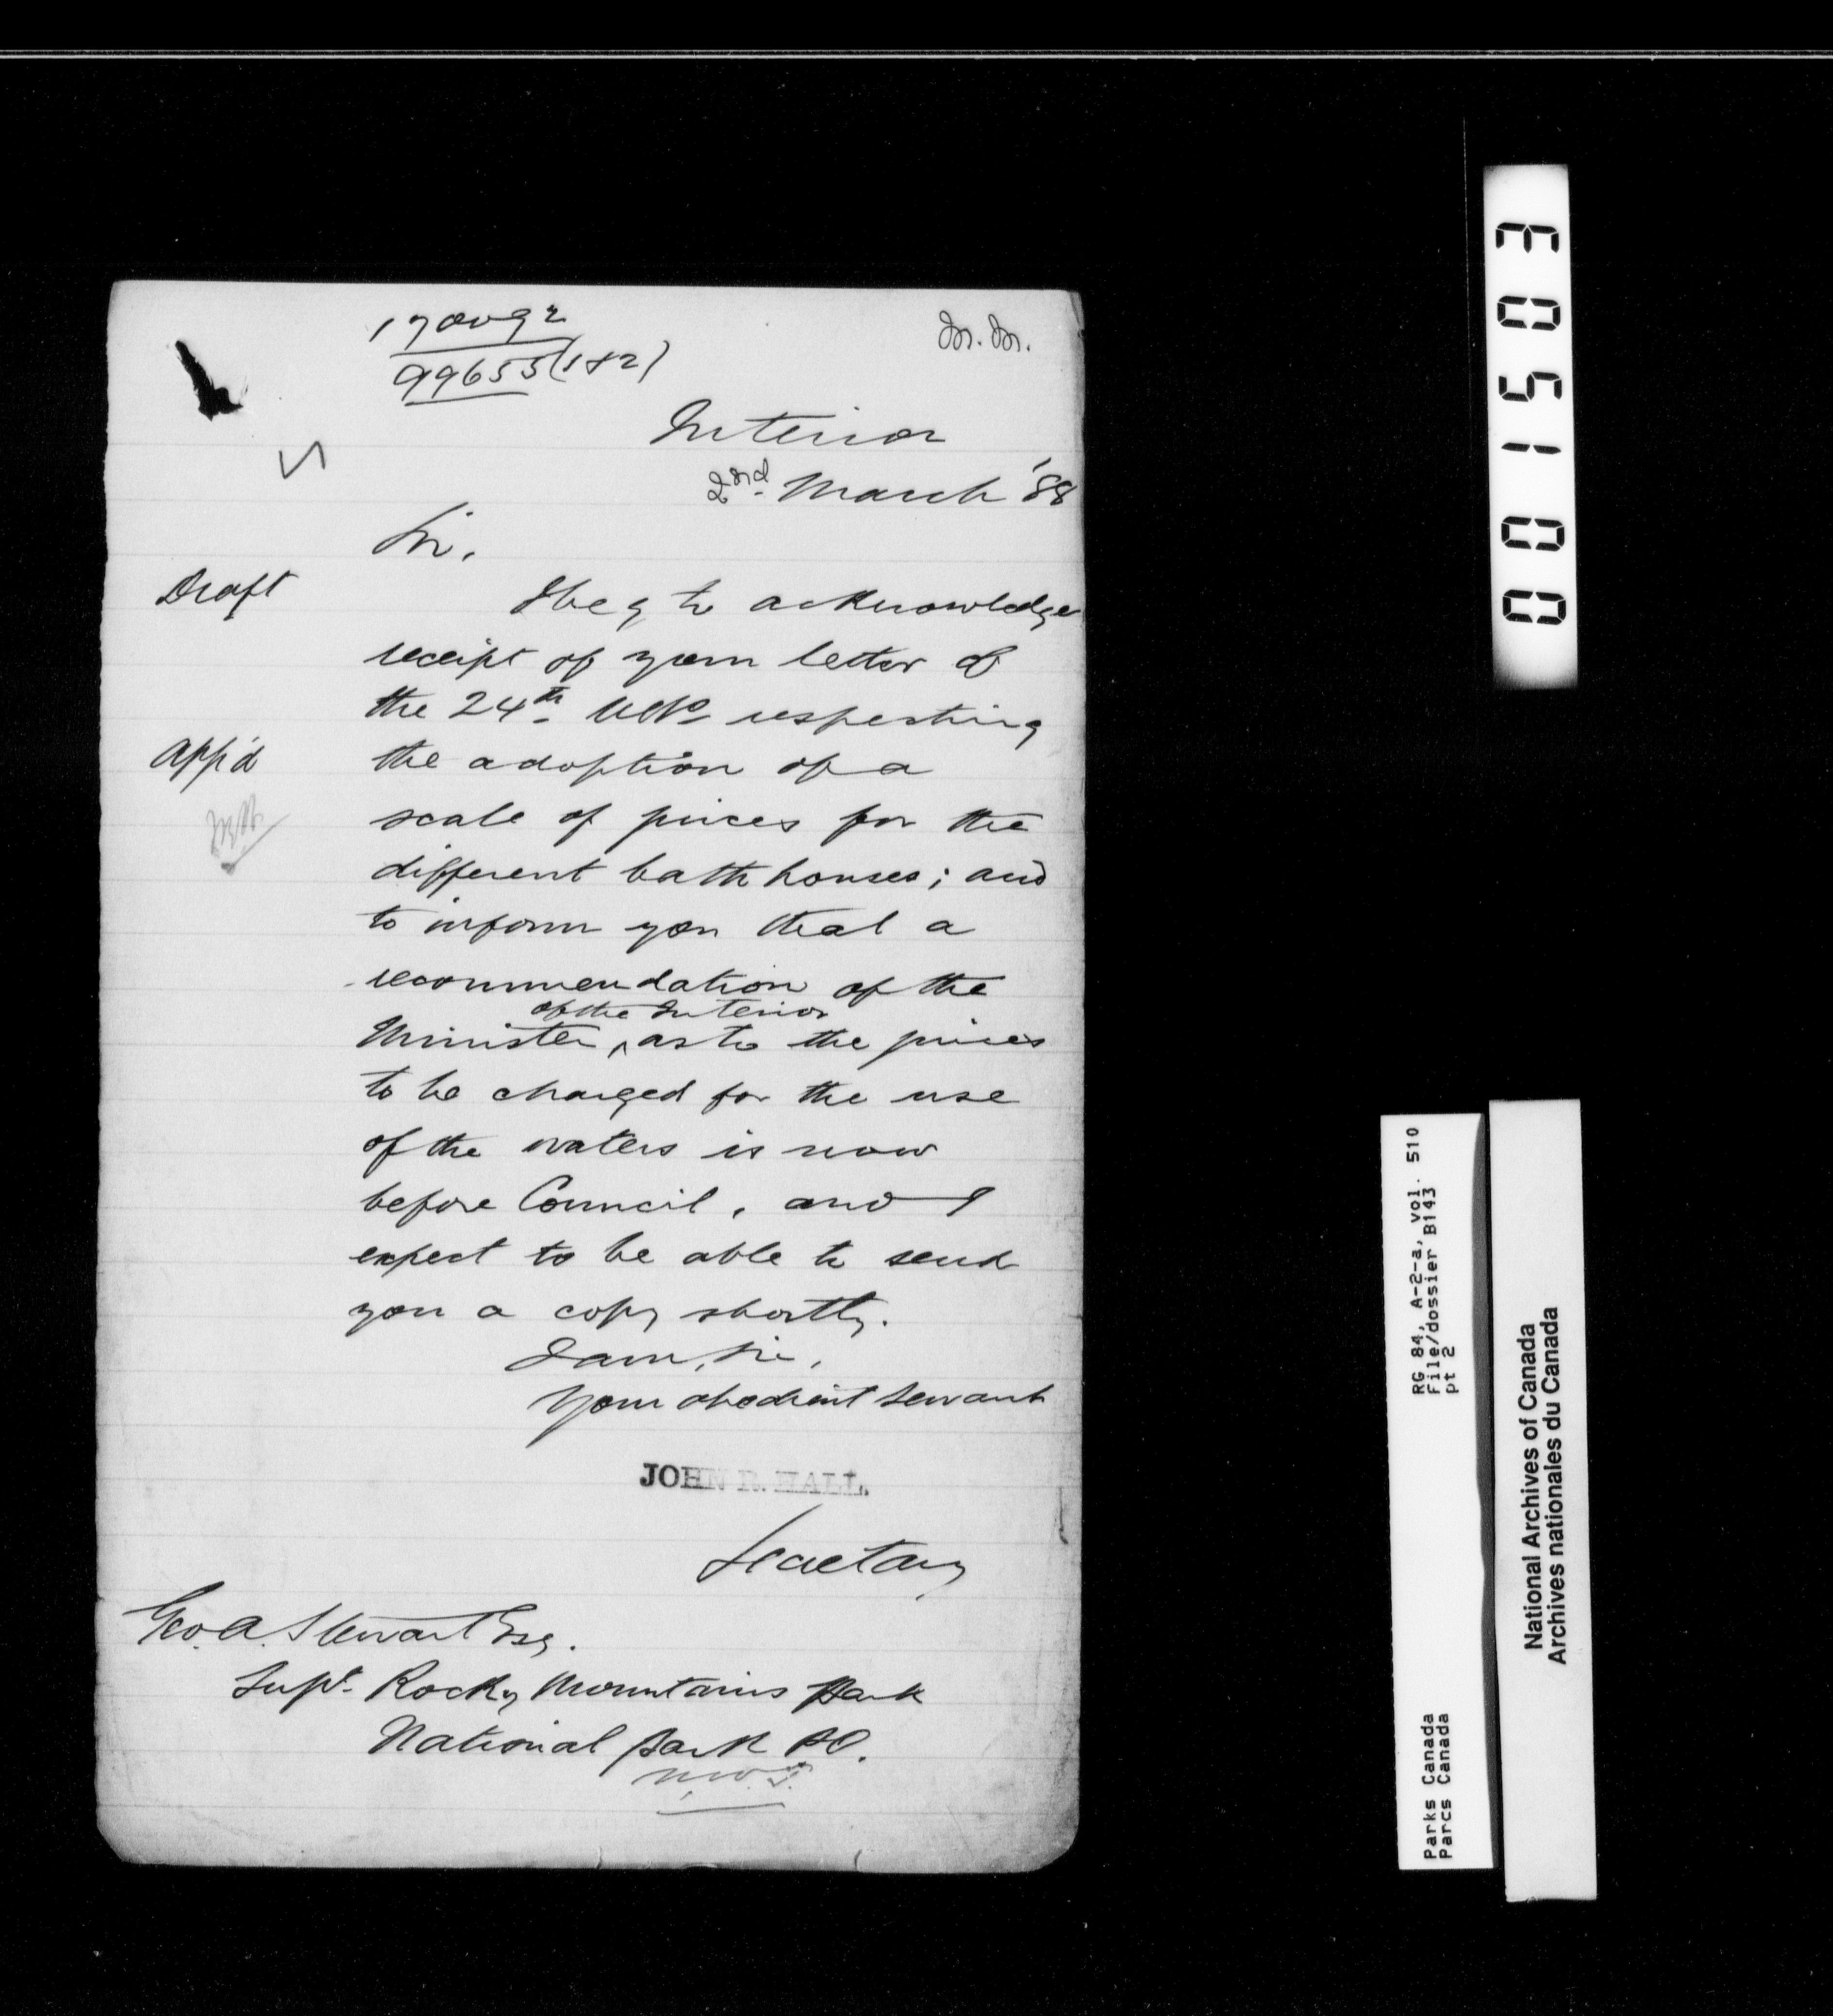 99653 (182)
M.M.
Interior
2nd. March '88
Sir,
Draft
I beg to acknowledge
receipt of your letter of
the 24th Ulto respecting
App'd
the adoption of a
scale of prices for the
different bath houses; and
to inform you that a
recommendation of the
of the Interior
Minister, ^ as to the prices
to be charged for the use
of the waters is now
before Council, and I
expect to be able to send
you a copy shortly.
I am, Sir,
Your obedient servant
JOHN R. HALL.
Secretary
Geo. A. Stewart Esq.
Supt. Rocky Mountains Park
National Park P.O.
N.W.T.
001503
RG 84, A-2-a, vol. 510
File/dossier B143
pt 2
Parks Canada
Parcs Canada
National Archives of Canada
Archives nationales du Canada